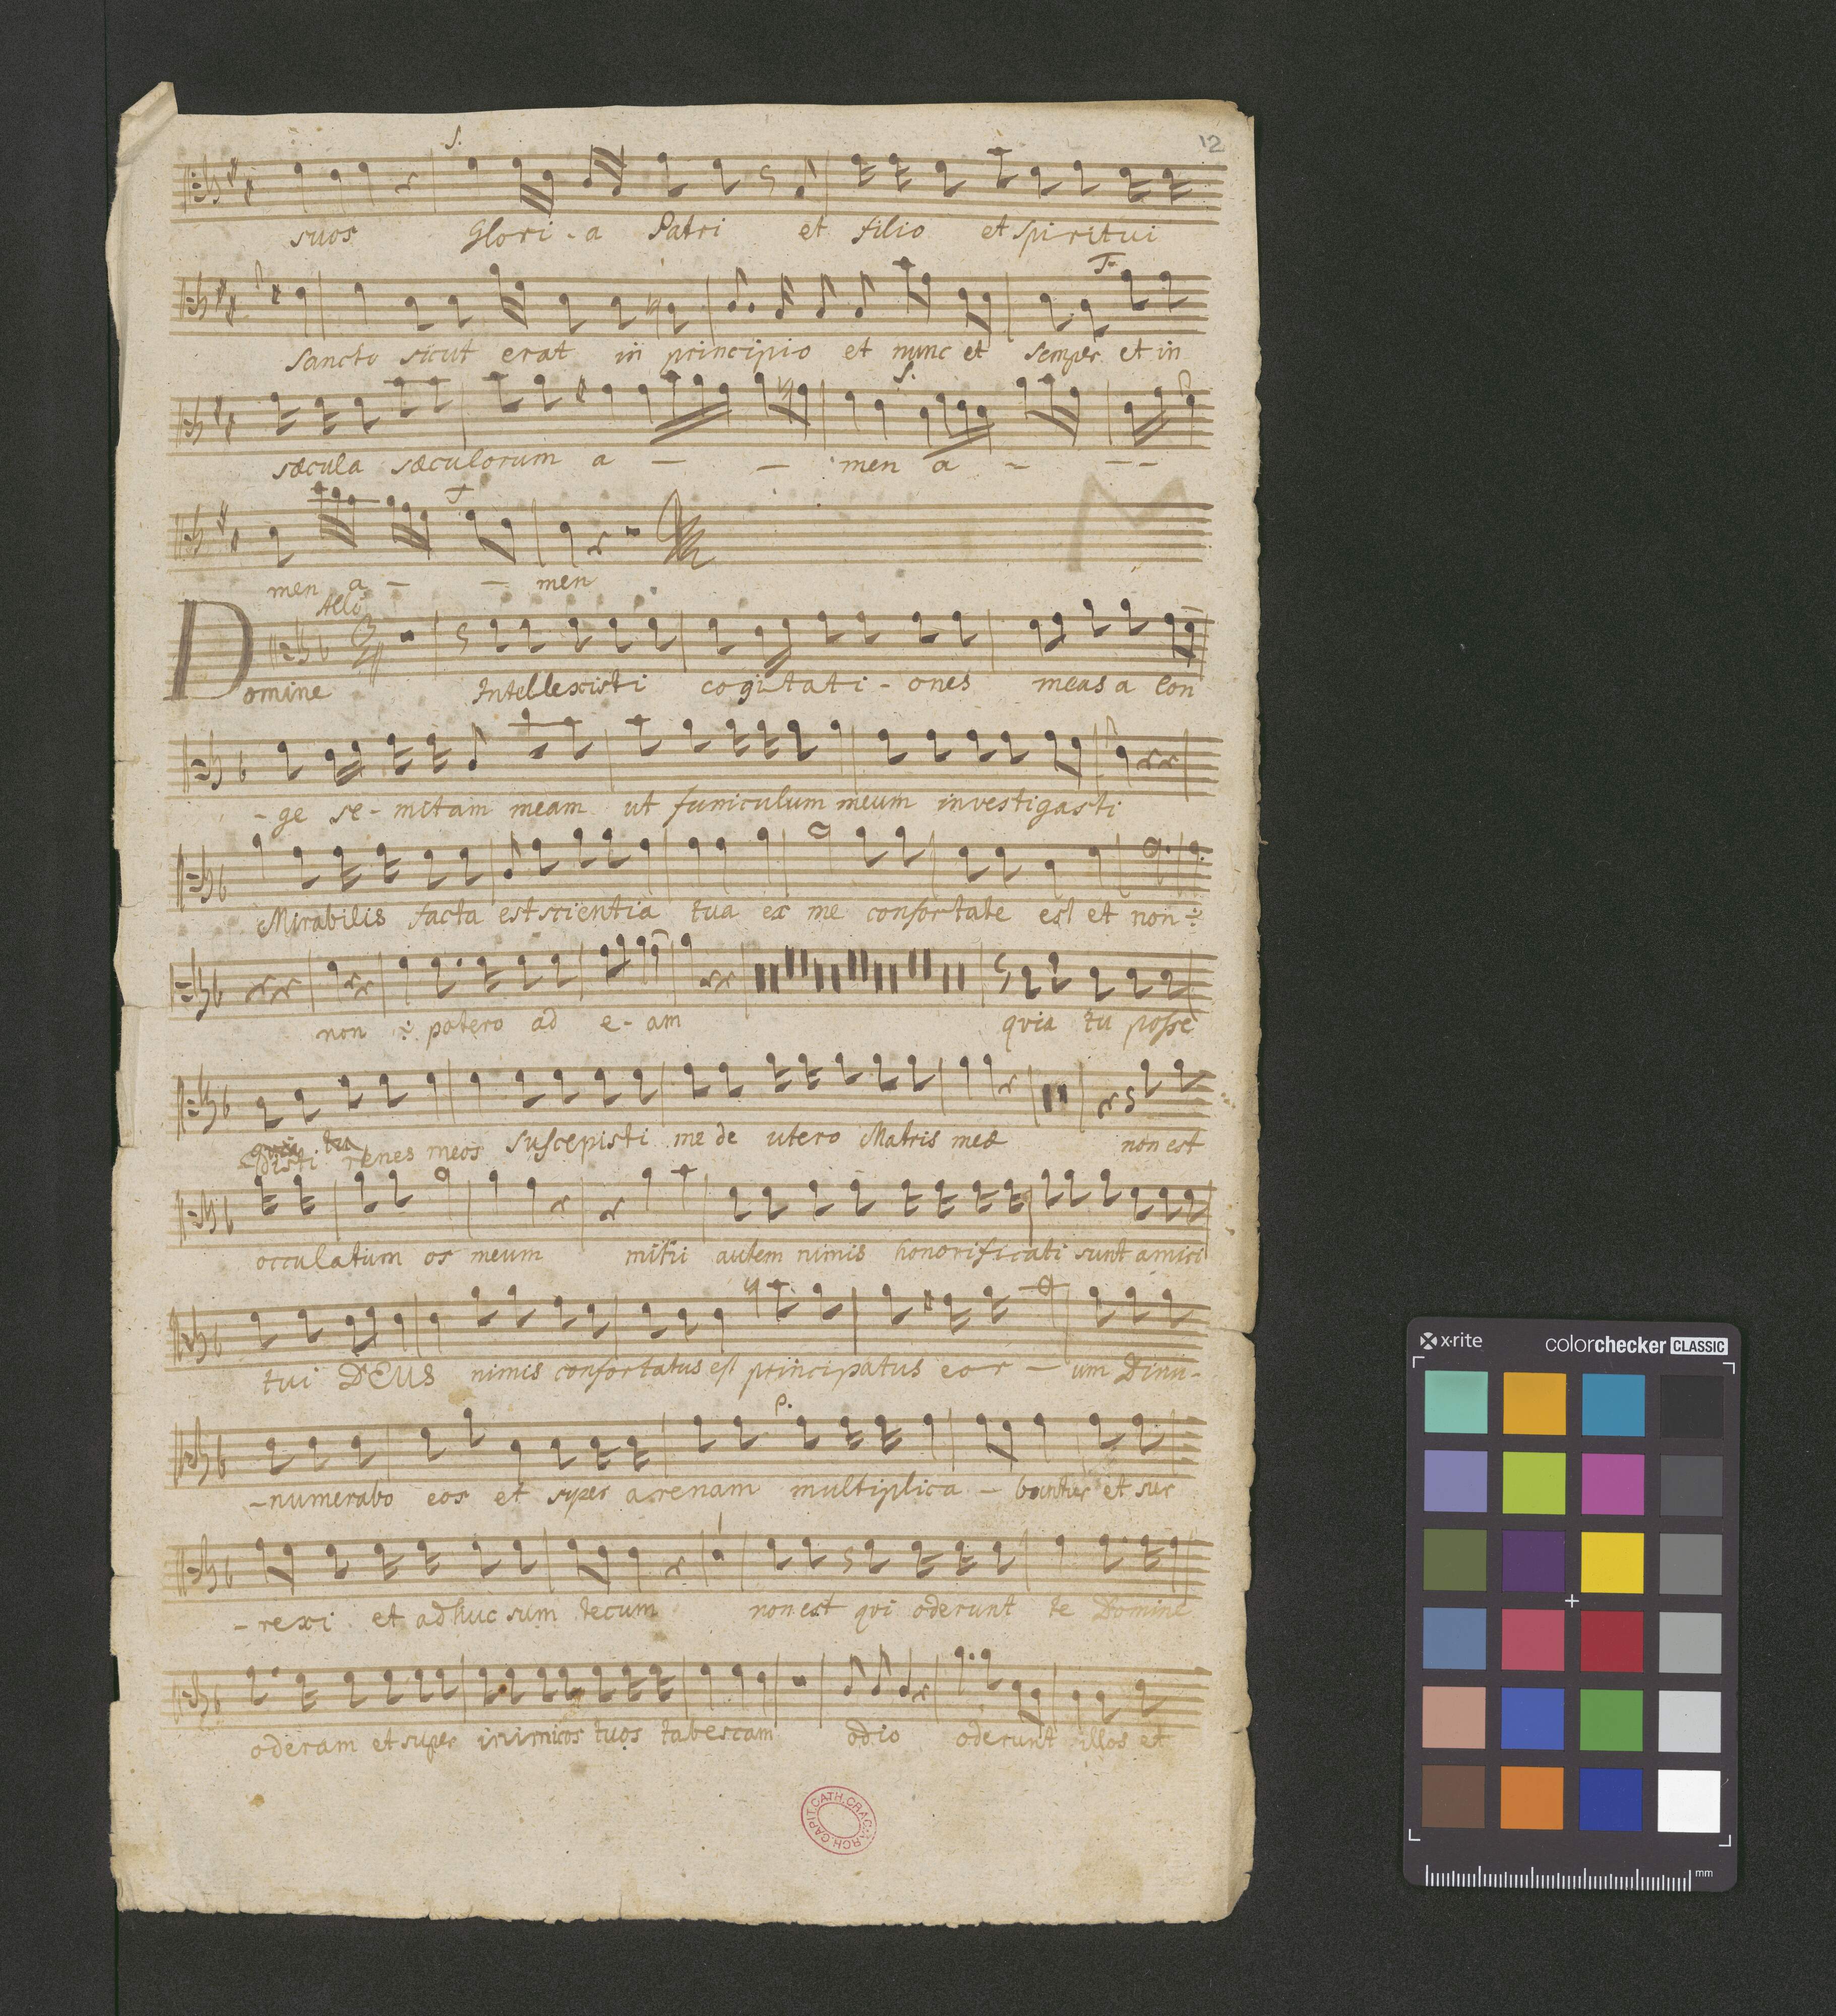 12
S.
suos Glori - a Patri et filio et spiritui
T
Sancto sicut erat in principio et nunc et semper et in
S.
sæcula sæculorum a — — men a - --
T
men a - — men
All:o
Domine Intellexisti cogitati - ones meas a lon
- ge se - mitam meam ut funiculum meum investigasti
Mirabilis facta est scientia tua ex me confortate est et non :
non : potero ad e - am quia tu posse
disti renes meos suscepisti me de utero Matris meæ non est
occulatum os meum mihi autem nimis honorificati sunt amici
tui DEUS nimis confortatus est principatus eor — um Dinu-
p.
-numerabo eos et super arenam multiplica - buntur et sur
- rexi et adhuc sum tecum non est qvi oderunt te Domine
oderam et super inimicos tuos tabescam odio oderunt illos et
ARCH. CAPIT. CATH. CRAC.
x-rite colorchecker CLASSIC
mm